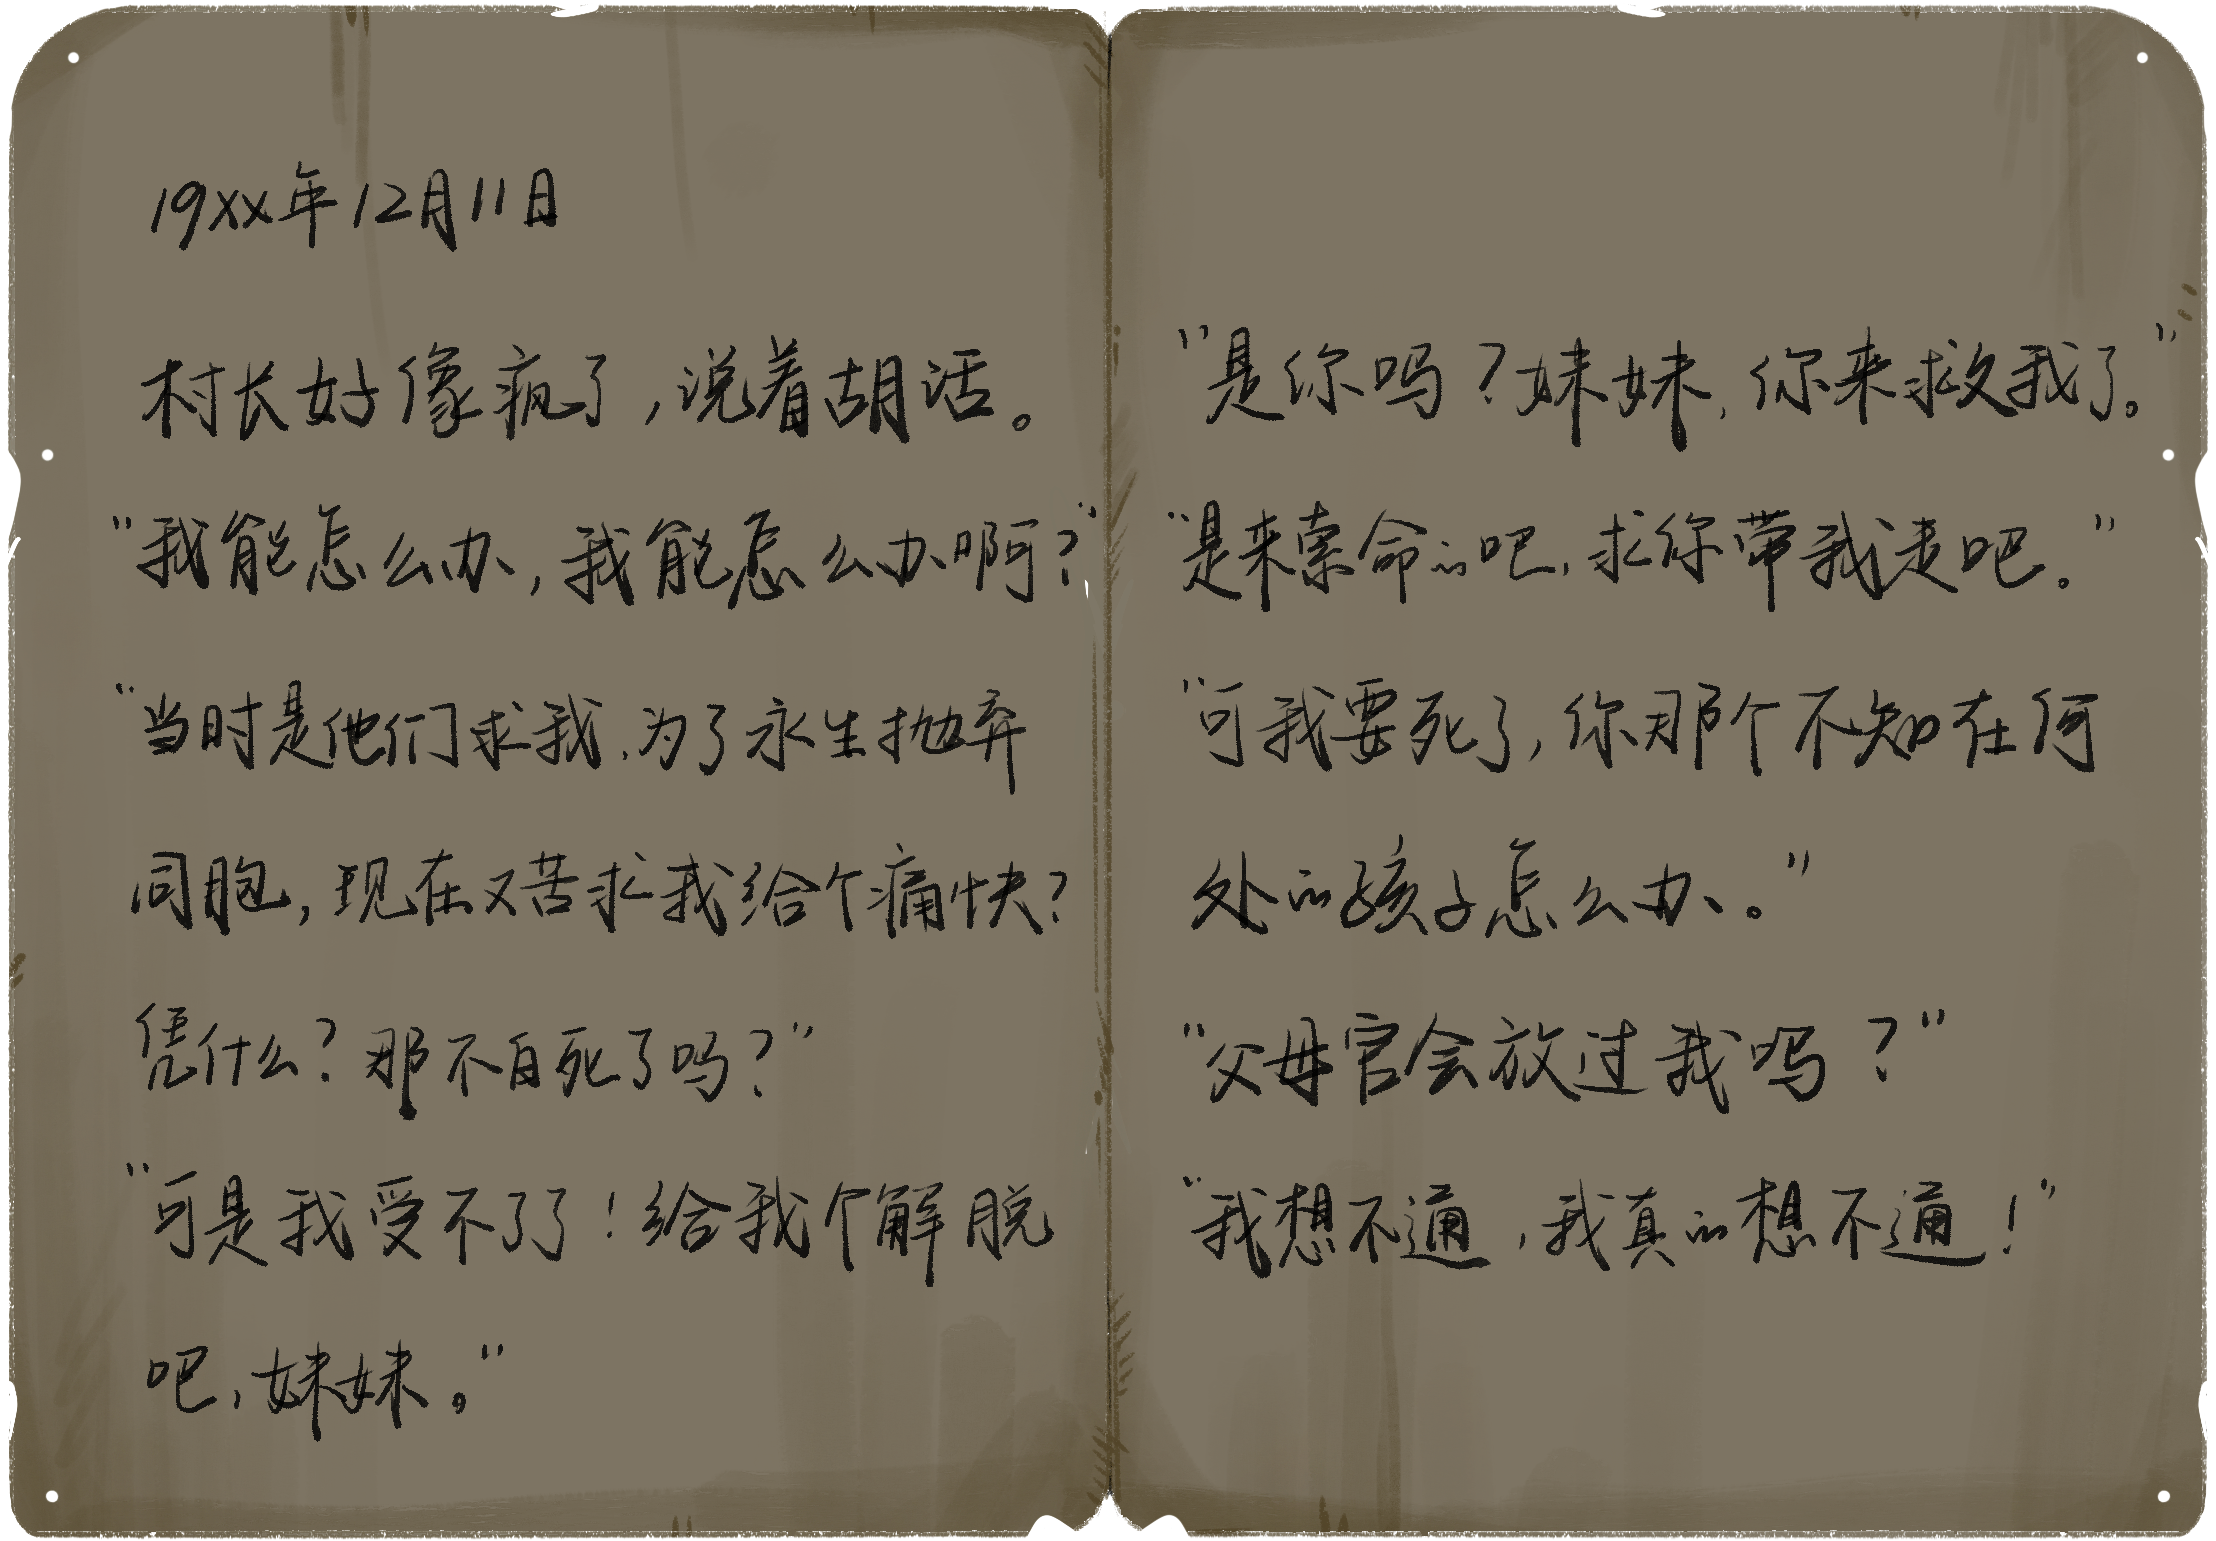 19xx年12月11日
村长好像疯了，说着胡话。
“我能怎么办，我能怎么办啊？”
“当时是他们求我，为了永生抛弃
同胞，现在又苦求我给个痛快？
凭什么？那不白死了吗？”
“可是我受不了了！给我个解脱
吧，妹妹。”
“是你吗？妹妹，你来救我了。”
“是来索命的吧，求你带我走吧。”
“可我要死了，你那个不知在何
处的孩子怎么办。”
“父母官会放过我吗？”
“我想不通，我真的想不通！”